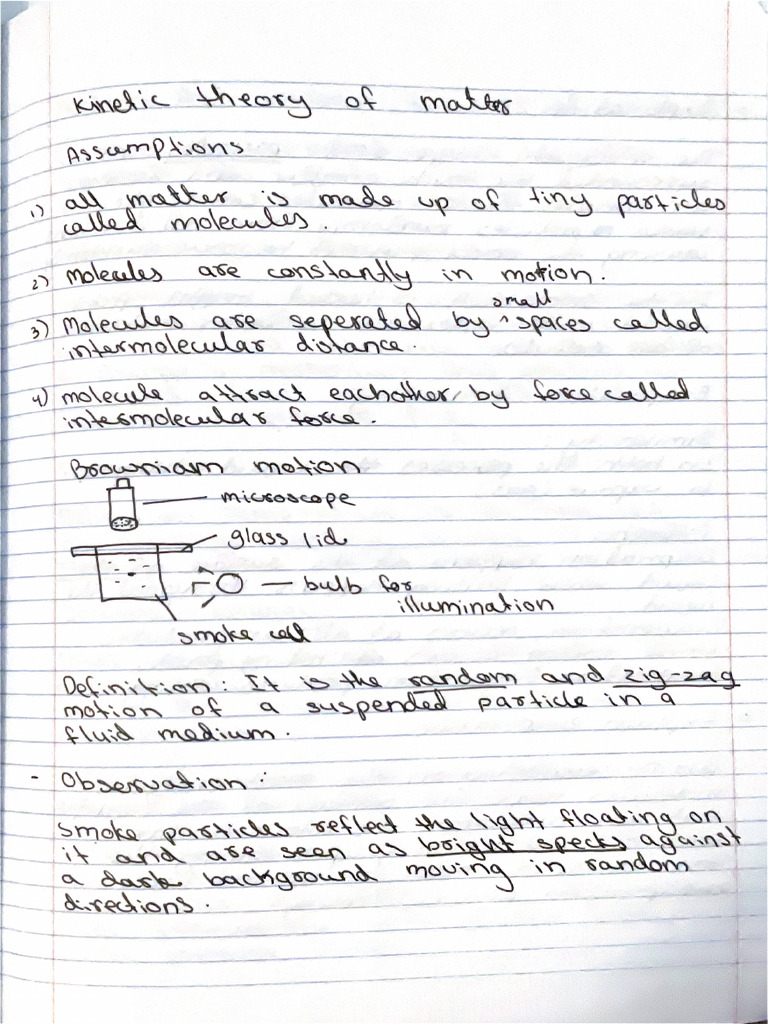 Kinetic theory of matter
Assumptions
1) all matter is made up of tiny particles
called molecules.
2) molecules are constantly in motion.
small
3) Molecules are seperated by ^ spaces called
intermolecular distance.
4) molecule attract eachother by force called
intermolecular force.
Browniam motion
microscope
glass lid
bulb for
illumination
smoke cell
Definition: It is the random and zig-zag
motion of a suspended particle in a
fluid medium.
- Observation:
smoke particles reflect the light floating on
it and are seen as bright specks against
a dark background moving in random
directions.